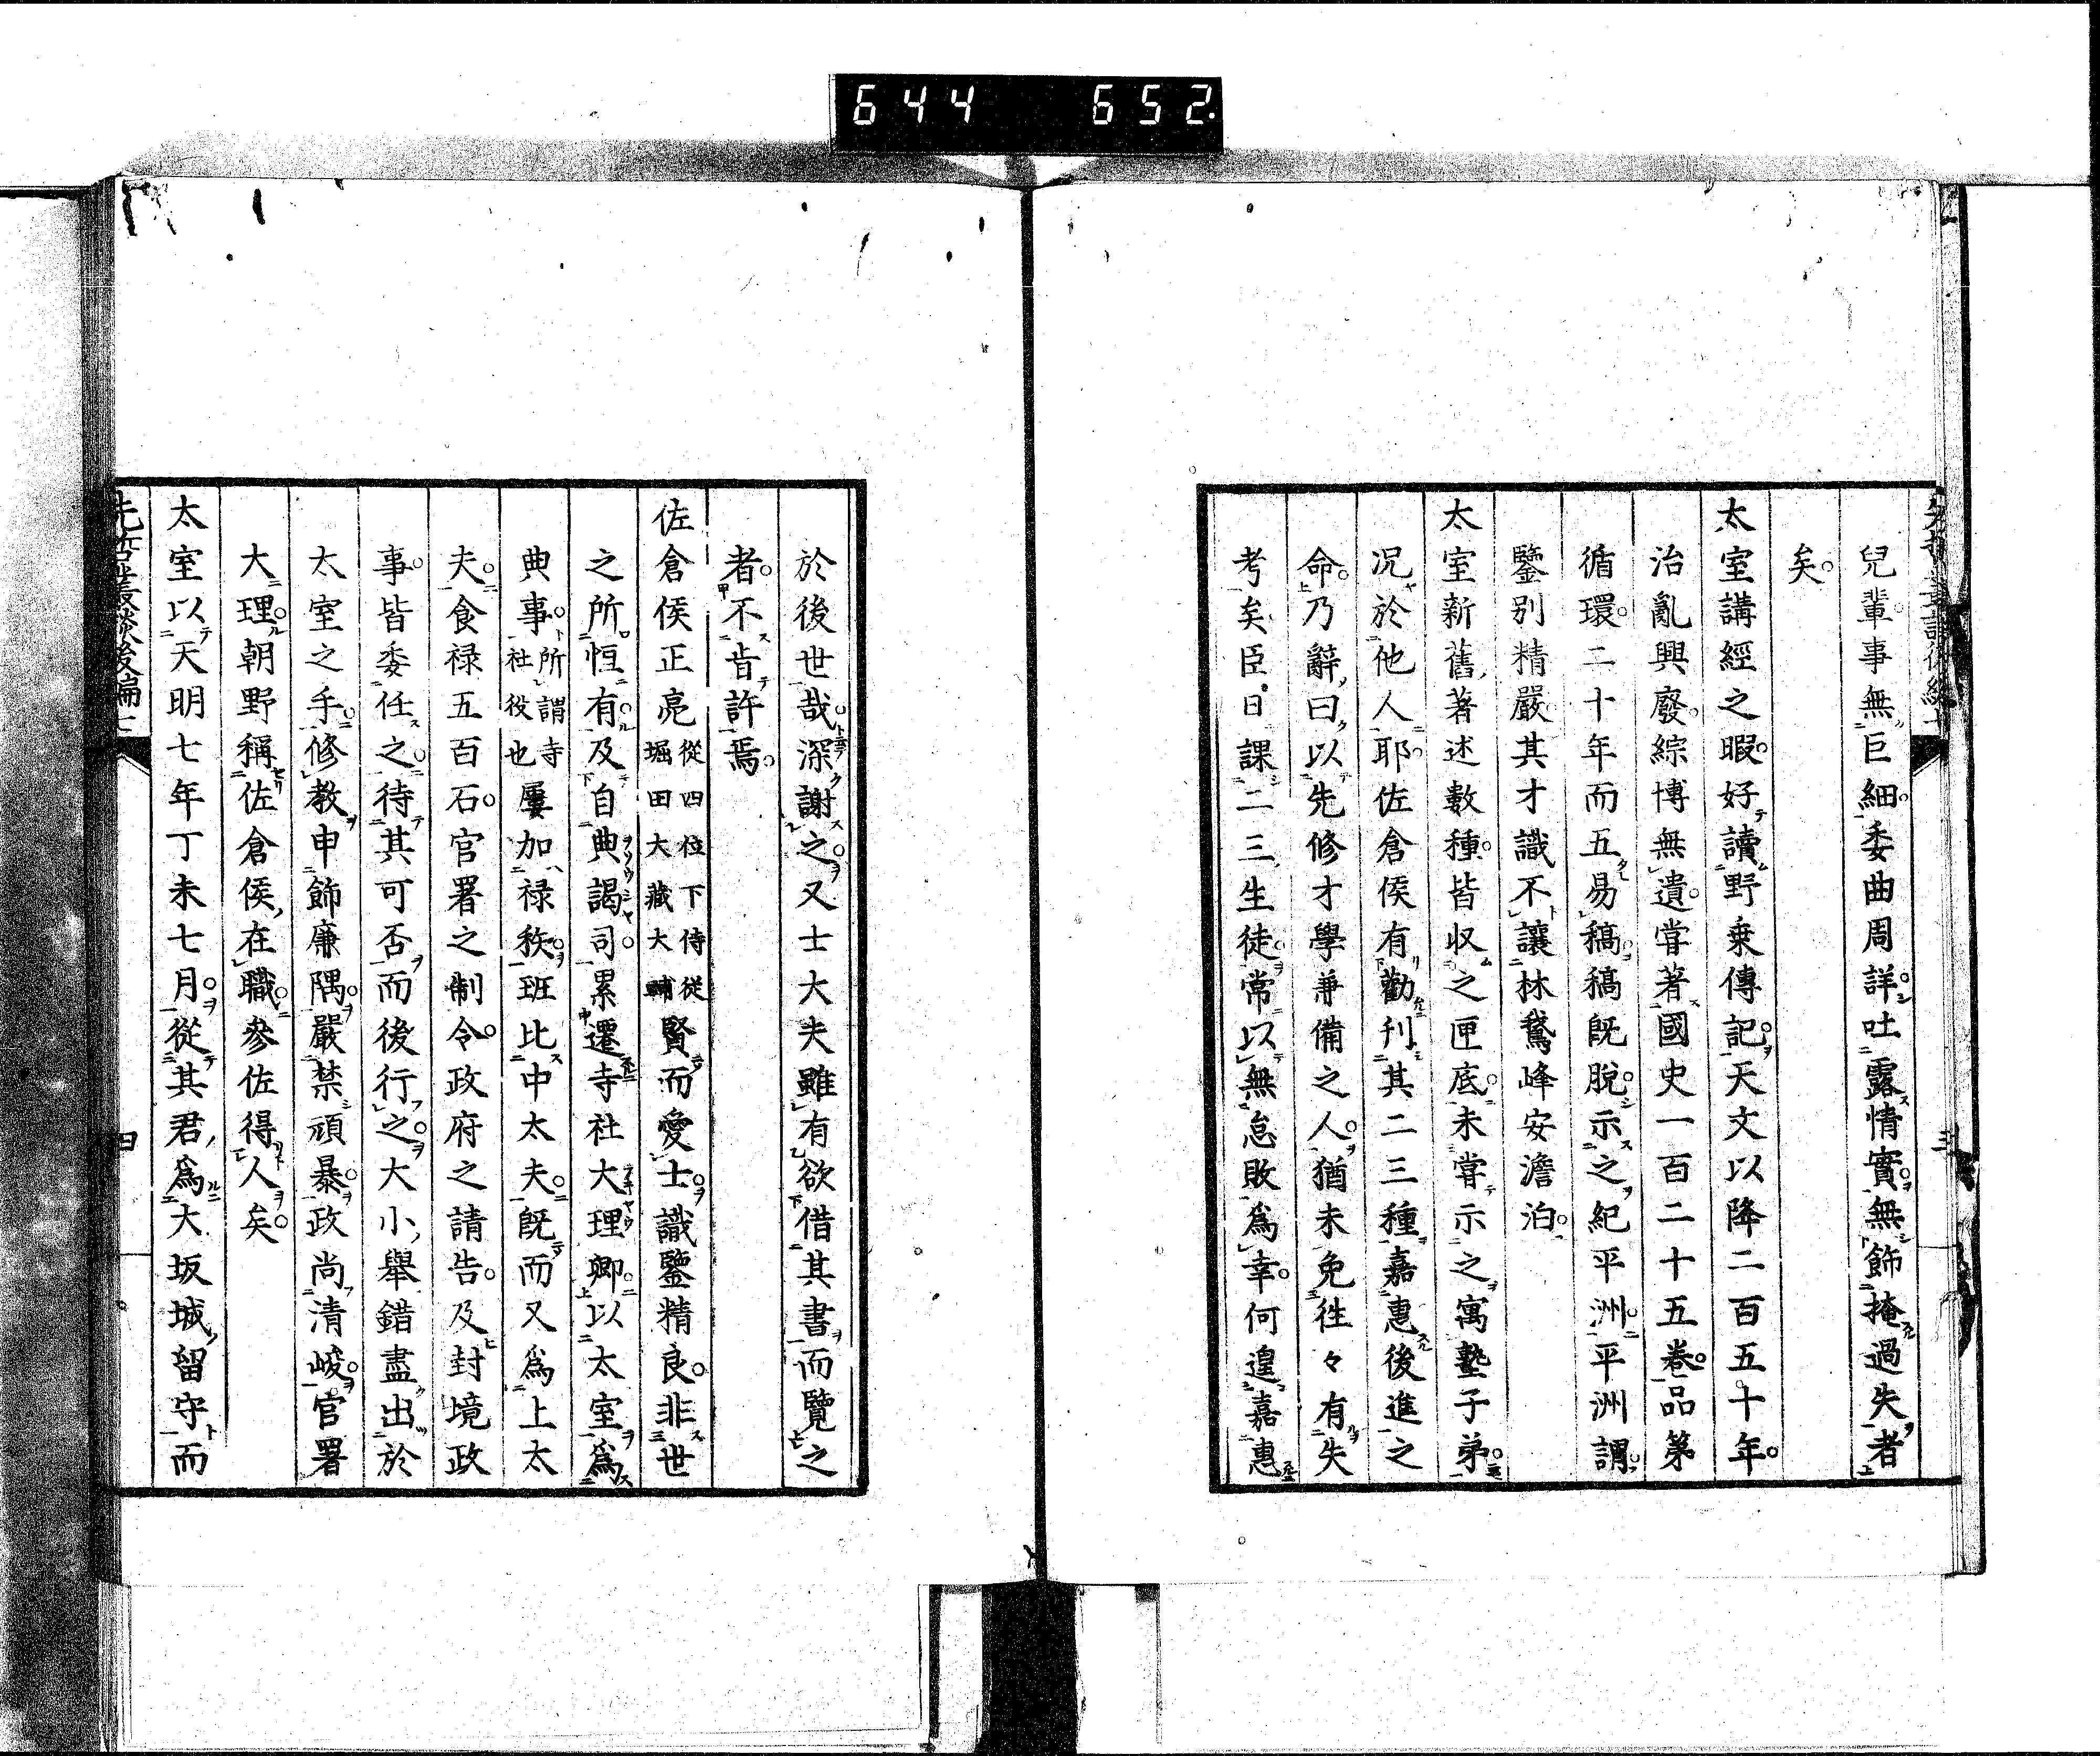 644 652.
兒輩事無巨細委曲周詳吐露情實無飾掩過失者
矣
太室講經之暇好讀野乗傳記天文以降二百五十年
治亂興廢綜博無遺甞著國史一百二十五巻品第
循環二十年而五易稿稿既脫示之紀平洲平洲謂
鑒別精嚴其才識不讓林鵞峰安澹泊
太室新舊著述數種皆収之匣底未甞示之寓塾子弟
況於他人耶佐倉侯有勸刋其二三種嘉惠後進之
命乃辭曰以先修才學兼備之人猶未免往々有失
考矣臣日課二三生徒常以無怠敗爲幸何遑嘉惠
於後世哉深謝之又士大夫雖有欲借其書而覽之
者不肯許焉
佐倉侯正亮從四位下侍從堀田大藏大輔賢而愛士識鑒精良非世
之所恒有及自典謁司累遷寺社大理卿以太室爲
典事所謂寺社役也屢加禄秩班比中太夫既而又爲上太
夫食禄五百石官署之制令政府之請告及封境政
事皆委任之待其可否而後行之大小舉錯盡出於
太室之手修教申飾廉隅嚴禁頑暴政尚清峻官署
大理朝野稱佐倉侯在職參佐得人矣
太室以天明七年丁未七月從其君爲大坂城留守而
先哲叢談後編七
四